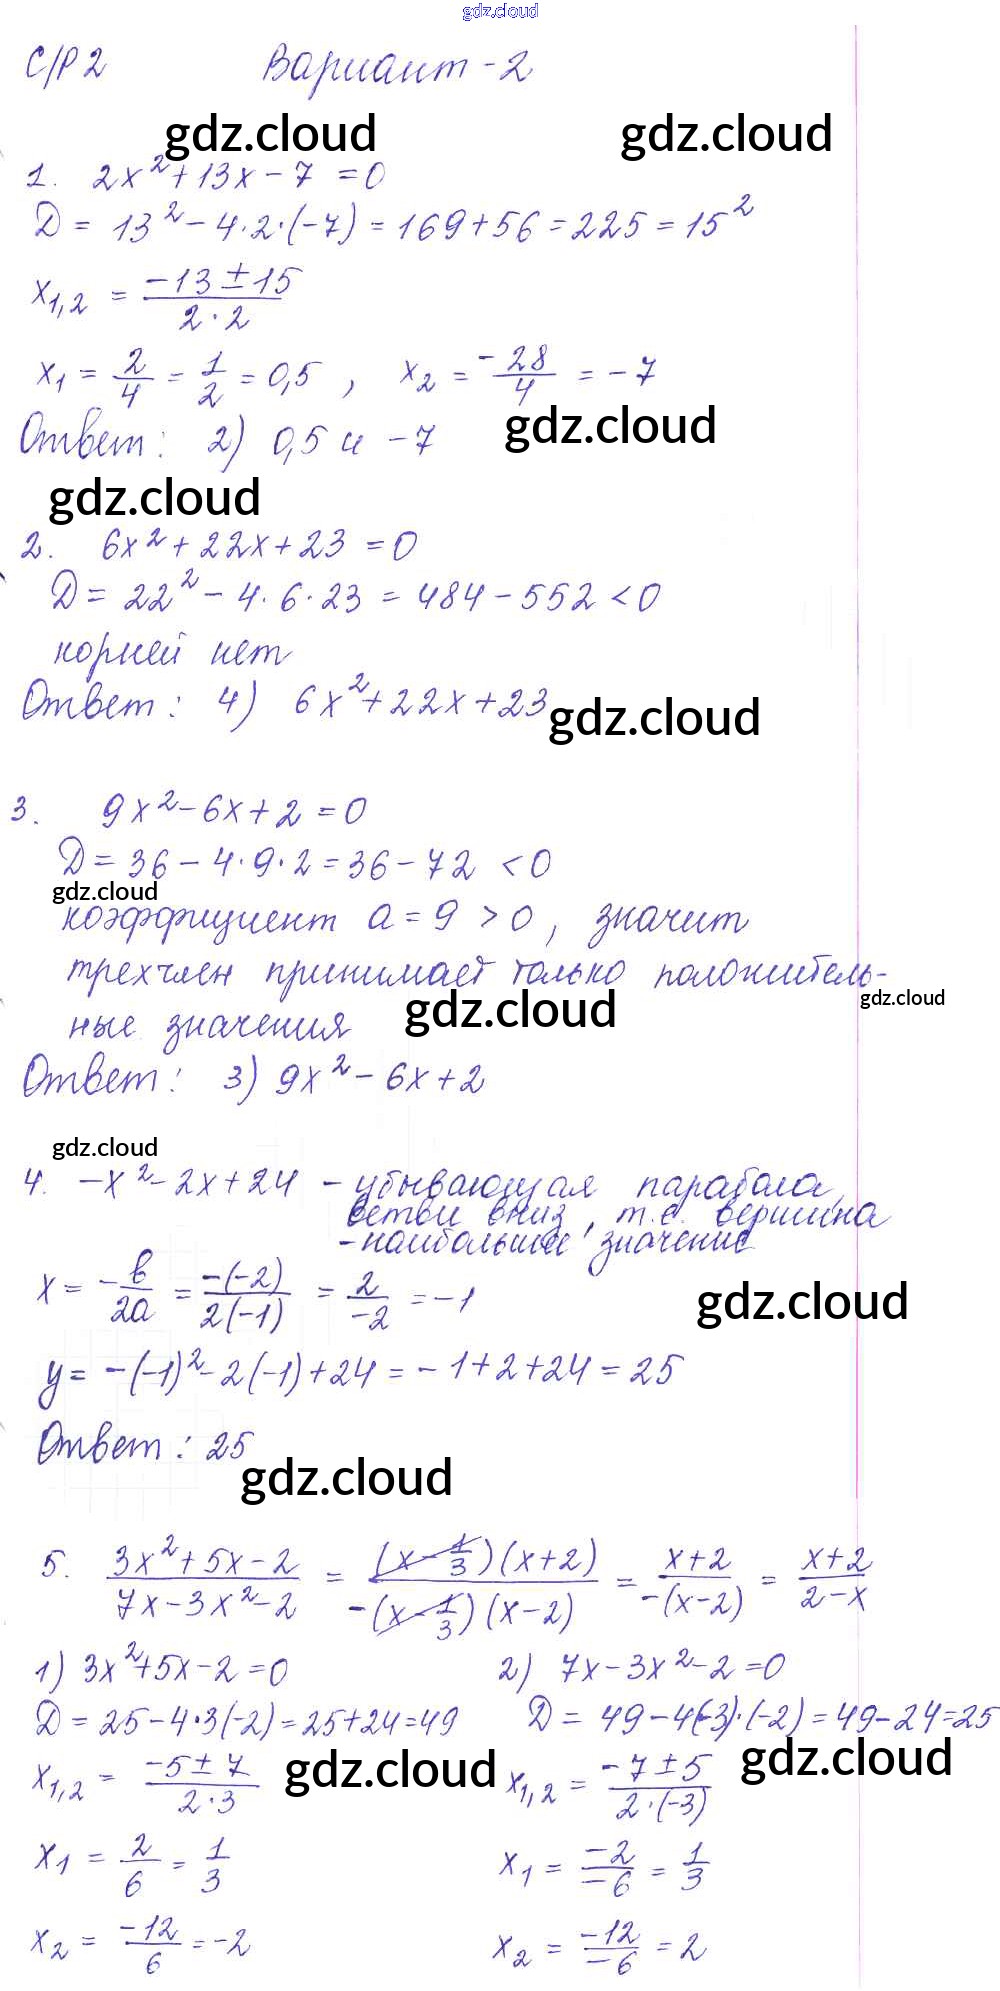 gdz.cloud
С/Р 2 Вариант - 2
gdz.cloud gdz.cloud
1. 2x² + 13x - 7 = 0
D = 13² - 4·2·(-7) = 169 + 56 = 225 = 15²
x₁,₂ = (-13 ± 15)/(2·2)
x₁ = 2/4 = 1/2 = 0,5 , x₂ = -28/4 = -7
Ответ: 2) 0,5 и -7
gdz.cloud
gdz.cloud
2. 6x² + 22x + 23 = 0
D = 22² - 4·6·23 = 484 - 552 < 0
корней нет
Ответ: 4) 6x² + 22x + 23
gdz.cloud
3. 9x² - 6x + 2 = 0
D = 36 - 4·9·2 = 36 - 72 < 0
gdz.cloud
коэффициент a = 9 > 0, значит
трехчлен принимает только положитель-
gdz.cloud gdz.cloud
ные значения
Ответ: 3) 9x² - 6x + 2
gdz.cloud
4. -x² - 2x + 24 - убывающая парабола,
ветви вниз, т.е. вершина
- наибольшее значение
x = -в/2a = -(-2)/2(-1) = 2/-2 = -1
gdz.cloud
y = -(-1)² - 2(-1) + 24 = -1 + 2 + 24 = 25
Ответ: 25
gdz.cloud
5. (3x² + 5x - 2)/(7x - 3x² - 2) = (x - 1/3)(x + 2)/-(x - 1/3)(x - 2) = (x + 2)/-(x - 2) = (x + 2)/(2 - x)
1) 3x² + 5x - 2 = 0 2) 7x - 3x² - 2 = 0
D = 25 - 4·3(-2) = 25 + 24 = 49 D = 49 - 4(-3)·(-2) = 49 - 24 = 25
gdz.cloud gdz.cloud
x₁,₂ = (-5 ± 7)/(2·3) x₁,₂ = (-7 ± 5)/(2·(-3))
x₁ = 2/6 = 1/3 x₁ = -2/-6 = 1/3
x₂ = -12/6 = -2 x₂ = -12/-6 = 2